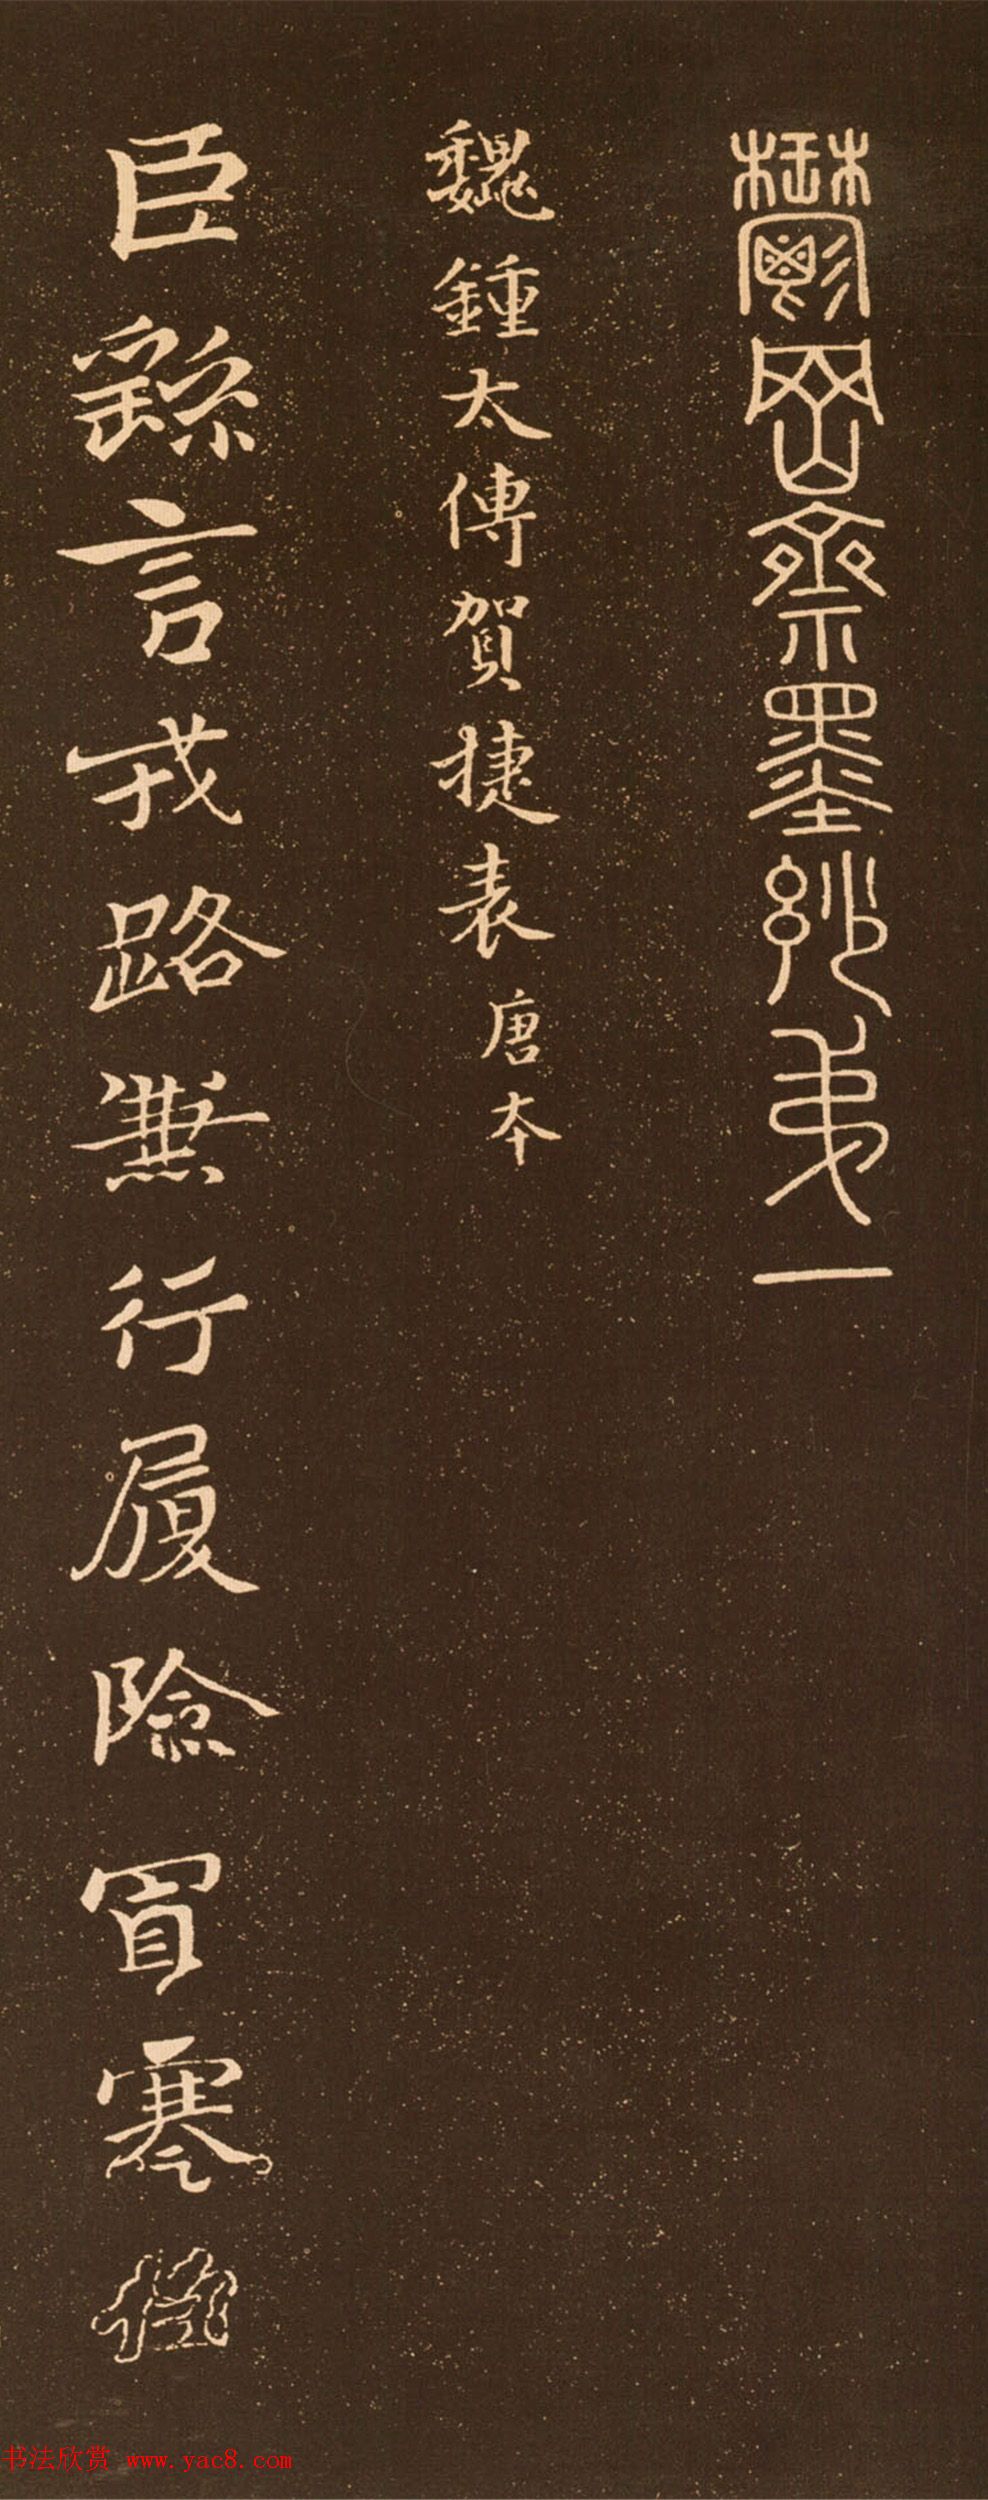 鬱岡齋墨妙第一
魏鍾太傅賀捷表 唐本
臣繇言戎路無行履險冒寒
书法欣赏 www.yac8.com